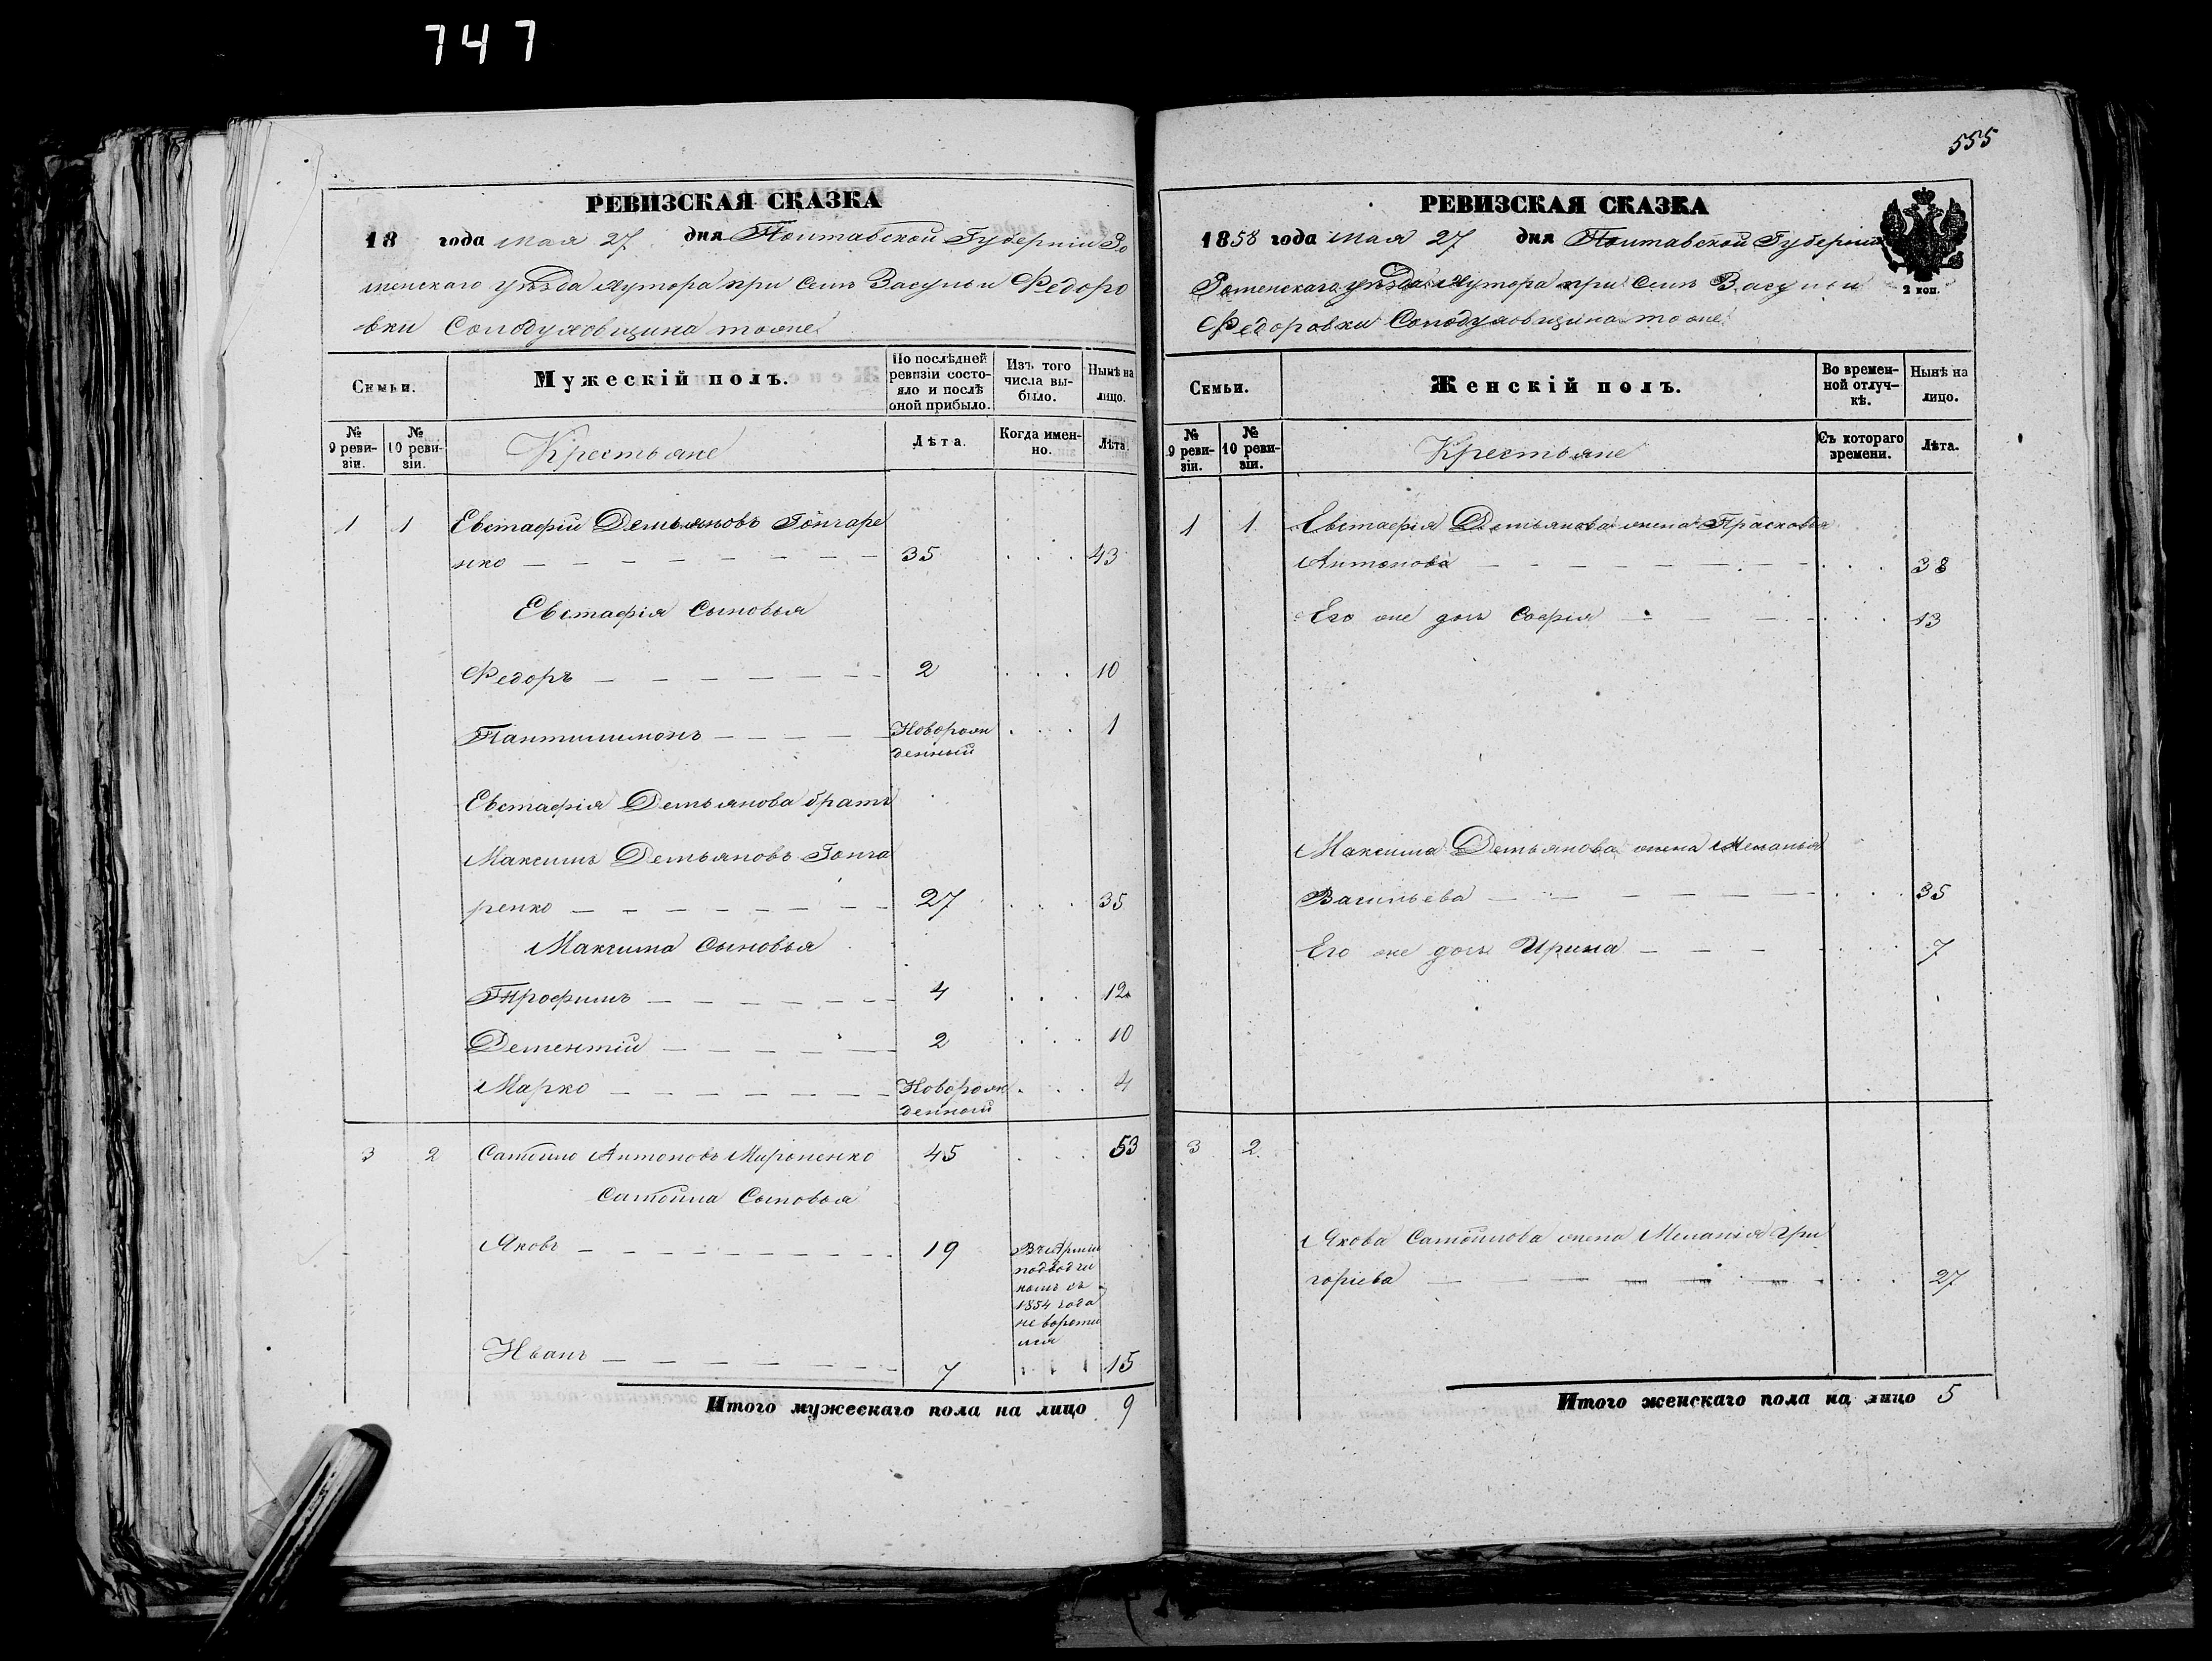 747
555
РЕВИЗСКАЯ СКАЗКА
18 года Мая 27 дня Полтавской Губерніи Ро
менскаго уѣзда хутора при селѣ Засульи Федоро
вки Солодуховщина тожъ
Семьи.
Мужескій полъ.
По послѣдней ревизіи состояло и послѣ оной прибыло.
Изъ того числа выбыло.
Нынѣ на лицо.
№ 9 ревизіи.
№ 10 ревизіи.
Крестьяне
Лѣта.
Когда именно.
Лѣта.
1 1 Евстафій Демьяновъ Гончаре
нко 35 43
Евстафія Сыновья
Федоръ 2 10
Пантилимонъ Новорож 1
денный
Евстафія Демьянова братъ
Максимъ Демьяновъ Гонча
ренко 27 35
Максима Сыновья
Трофимъ 4 12
Дементій 2 10
Марко Новорож 4
денный
3 2 Самойло Антоновъ Мироненко 45 53
Самойла Сыновья
Яковъ 19 Въ Арміи
подводчи
комъ съ
1854 года
не вороти
лся
Иванъ 7 15
Итого мужескаго пола на лицо 9
РЕВИЗСКАЯ СКАЗКА
1858 года Мая 27 дня Полтавской Губерніи
Роменскаго уѣзда хутора при селѣ Засульи
Федоровки Солодуховщина тожъ
2 коп.
Семьи.
Женскій полъ.
Во временной отлучкѣ.
Нынѣ на лицо.
№ 9 ревизіи.
№ 10 ревизіи.
Крестьяне
Съ котораго времени.
Лѣта.
1 1 Евстафія Демьянова жена Прасковья
Антонова 38
Его же дочь Софія 13
Максима Демьянова жена Меланья
Васильева 35
Его же дочь Ирина 7
3 2
Якова Самойлова жена Меланія Гри
горіева 27
Итого женскаго пола на лицо 5